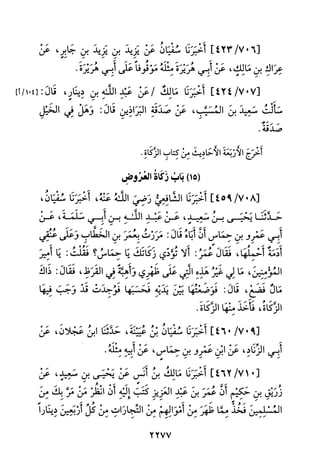 [٤٢٣/٧٠٦] أَخْبَرَنَا سُفْيَانُ عَنْ يَزِيدَ بنِ يَزِيدَ بنِ جَابِرٍ، عَنْ
عِرَاكِ بنِ مَالِكٍ، عَنْ أَبِي هُرَيْرَةَ مِثْلَهُ مَوْقُوفاً عَلَى أَبِي هُرَيْرَةَ.
[٤٢٤/٧٠٧] أَخْبَرَنَا مَالِكٌ / عَنْ عَبْدِ اللَّهِ بنِ دِينَارٍ، قَالَ: [١٠٤/أ]
سَأَلْتُ سَعِيدَ بنَ المُسَيَّبِ، عَنْ صَدَقَةِ البَرَاذِينِ قَالَ: وَهَلْ فِي الخَيْلِ
صَدَقَةٌ.
أَخْرَجَ الأَرْبَعَةَ الأَحَادِيثَ مِنْ كِتابِ الزَّكَاةِ.
(١٥) بَابُ زَكَاةِ العُرُوضِ
[٤٥٩/٧٠٨] أَخْبَرَنَا الشَّافِعِيُّ رَضِيَ اللَّهُ عَنْهُ، أَخْبَرَنَا سُفْيَانُ،
حَدَّثَنَا يَحْيَى بنُ سَعِيدٍ، عَنْ عَبْدِ اللَّهِ بنِ أَبِي سَلَمَةَ، عَنْ
أَبِي عَمْرِو بنِ حِمَاسٍ أَنَّ أَبَاهُ قَالَ: مَرَرْتُ بِعُمَرَ بنِ الخَطَّابِ وَعَلَى عُنُقِي
أَدَمَةٌ أَحْمِلُهَا، فَقَالَ عُمَرُ: أَلَا تُؤَدِّي زَكَاتَكَ يَا حِمَاسُ؟ فَقُلْتُ: يَا أَمِيرَ
المُؤْمِنِينَ، مَا لِي غَيْرُ هَذِهِ الَّتِي عَلَى ظَهْرِي وَآهِبَةٌ فِي القَرَظِ، فَقَالَ: ذَاكَ
مَالٌ فَضَعْ، قَالَ: فَوَضَعْتُهَا بَيْنَ يَدَيْهِ فَحَسَبَهَا فَوُجِدَتْ قَدْ وَجَبَ فِيهَا
الزَّكَاةُ، فَأَخَذَ مِنْهَا الزَّكَاةَ.
[٤٦٠/٧٠٩] أَخْبَرَنَا سُفْيَانُ بْنُ عُيَيْنَةَ، حَدَّثَنَا ابنُ عَجْلَانَ، عَنْ
أَبِي الزِّنَادِ، عَنْ ابْنِ عَمْرِو بنِ حِمَاسٍ، عَنْ أَبِيهِ مِثْلَهُ.
[٤٦٢/٧١٠] أَخْبَرَنَا مَالِكُ بنُ أَنَسٍ عَنْ يَحْيَى بنِ سَعِيدٍ، عَنْ
رُزَيْقِ بنِ حَكِيْمٍ أَنَّ عُمَرَ بنَ عَبْدِ العَزِيزِ كَتَبَ إِلَيْهِ أَنْ انْظُرْ مَنْ مَرَّ بِكَ مِنَ
المُسْلِمِينَ فَخُذْ مِمَّا ظَهَرَ مِنْ أَمْوَالِهِمْ مِنَ التِّجَارَاتِ مِنْ كُلِّ أَرْبَعِينَ دِينَاراً
٢٢٧٧